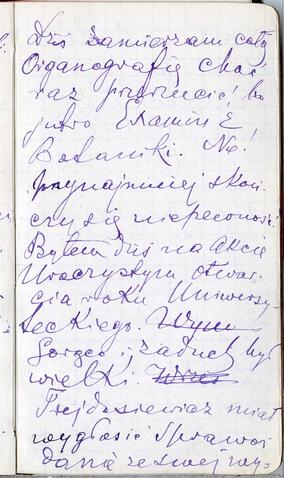 Dziś zamierzam całą
Organografię choć
raz przerzucić! bo
jutro Examin z
Botaniki. No!
przynajmniej skoń
czy się niepewność.
Byłem dziś na akcie
Uroczystym otwar-
cia roku Uniwersy-
teckiego.
Gorąco i zaduch był
wielki.
Trejdosiewicz miał
wygłosić Sprawoz
danie ze swej wy-